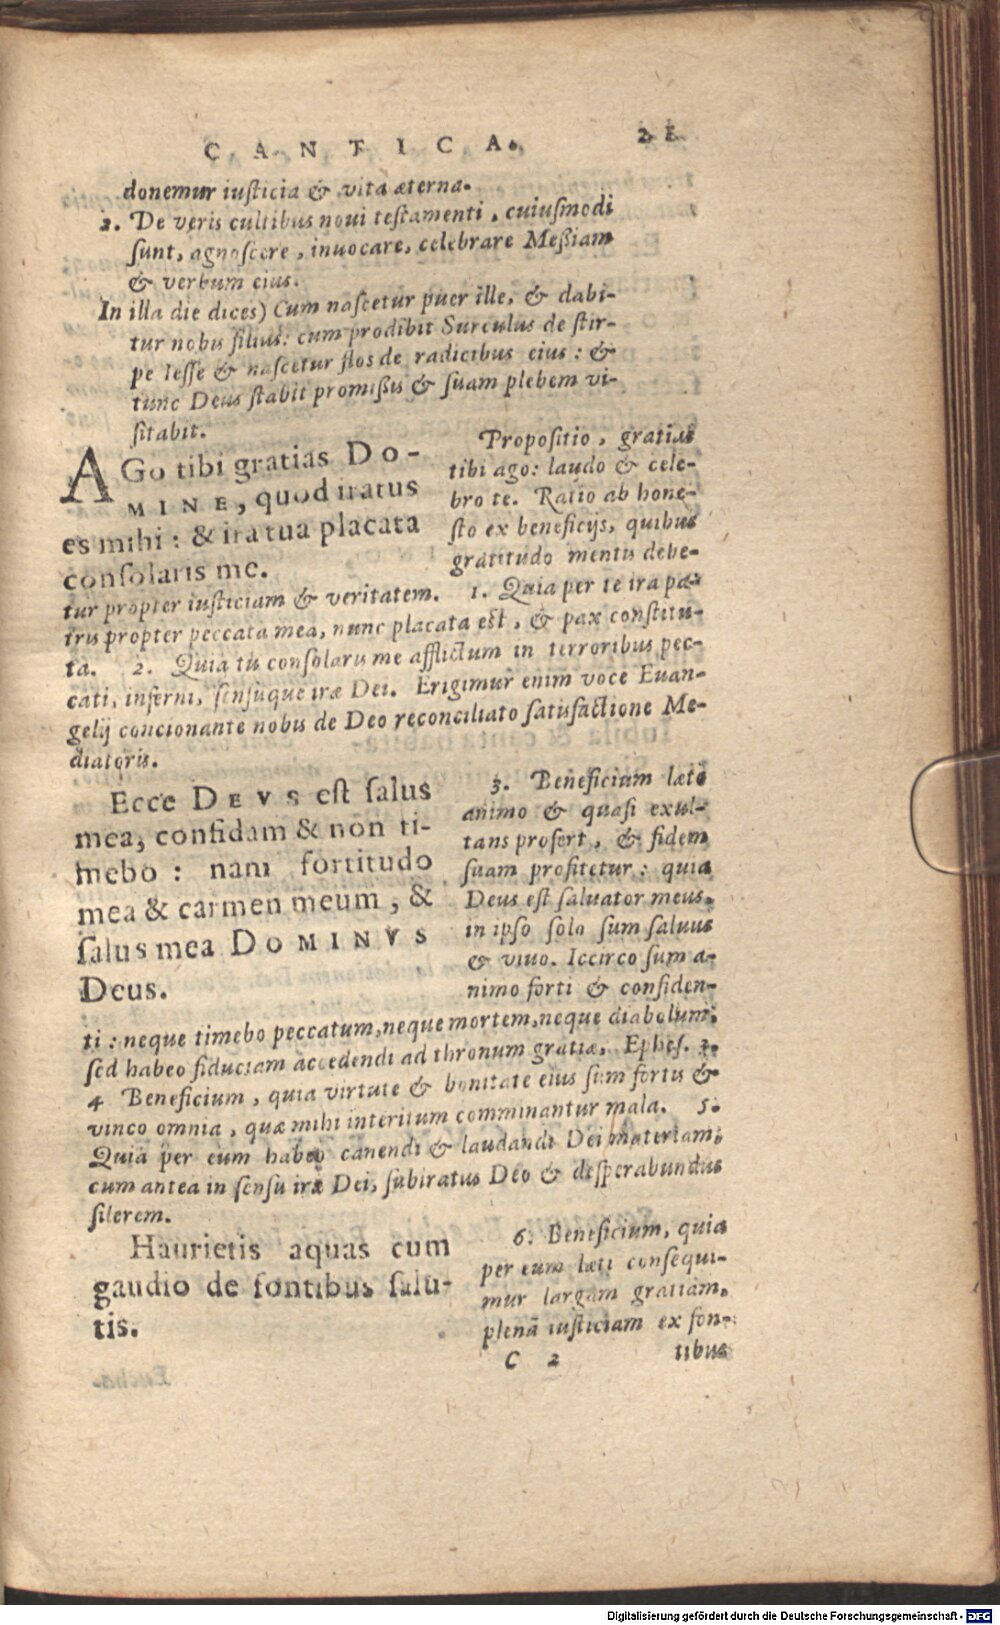 CANTICA. 21
donemur iusticia & vita æterna.
2. De veris cultibus noui testamenti, cuiusmodi
sunt, agnoscere, inuocare, celebrare Meßiam
& verbum eius.
In illa die dices) Cum nascetur puer ille, & dabi-
tur nobis filius: cum prodibit Surculus de stir-
pe Iesse & nascetur flos de radicibus eius: &
tunc Deus stabit promißis & suam plebem vi-
sitabit.
AGo tibi gratias Do-
MINE, quod iratus
es mihi: & ira tua placata
consolaris me.
Propositio, gratias
tibi ago: laudo & cele-
bro te. Ratio ab hone-
sto ex beneficijs, quibus
gratitudo mentis debe-
tur propter iusticiam & veritatem. 1. Quia per te ira pa-
tris propter peccata mea, nunc placata est, & pax constitu-
ta. 2. Quia tu consolaris me afflictum in terroribus pec-
cati, inferni, sensuque iræ Dei. Erigimur enim voce Euan-
gelij concionante nobis de Deo reconciliato satisfactione Me-
diatoris.
Ecce DEVS est salus
mea, confidam & non ti-
mebo: nam fortitudo
mea & carmen meum, &
salus mea DOMINVS
Deus.
3. Beneficium læto
animo & quasi exul-
tans profert, & fidem
suam profitetur: quia
Deus est saluator meus,
in ipso solo sum saluus
& viuo. Iccirco sum a-
nimo forti & confiden-
ti: neque timebo peccatum, neque mortem, neque diabolum:
sed habeo fiduciam accedendi ad thronum gratiæ, Ephes. 3.
4 Beneficium, quia virtute & bonitate eius sum fortis &
vinco omnia, quæ mihi interitum comminantur mala. 5.
Quia per eum habeo canendi & laudandi Dei materiam,
cum antea in sensu iræ Dei, subiratus Deo & desperabundus
silerem.
Haurietis aquas cum
gaudio de fontibus salu-
tis.
6. Beneficium, quia
per eum læti consequi-
mur largam gratiam,
plenã iusticiam ex fon-
C 2 tibus
Digitalisierung gefördert durch die Deutsche Forschungsgemeinschaft - DFG